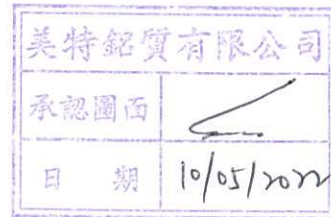 美特鋁質有限公司
承認圖面
日 期 10/05/2022